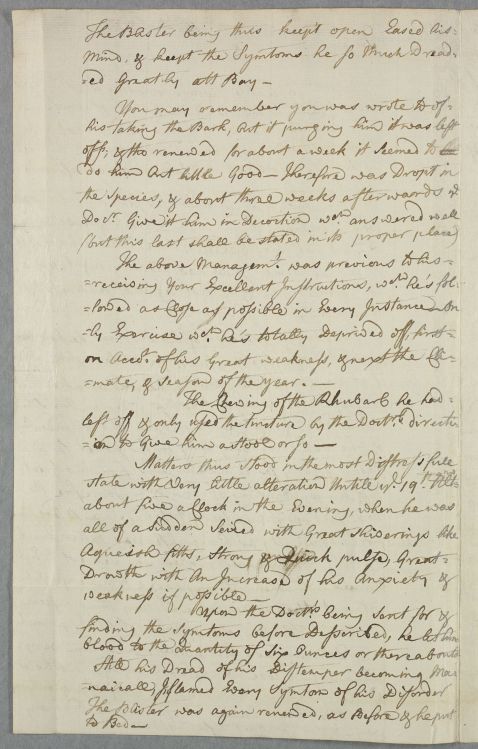 The Blister being thus keept open Eased his
Mind, & keept the Symtoms he so Much Dread-
=ed Greatly att Bay —
You may remember you was wrote to of-
his taking the Bark, but it purging him it was left
off; & tho renewed for about a week it seemed to
do him but little Good — Therefore was Dropt in
the Species, & about three weeks afterwards ye
Docr. Give it him in Decoction wch. answered well
(but this last shall be stated in its proper place)
The above Managemt. was previous to his-
=receiving Your Excellent Instructions, wch. he's fol-
=lowed as Close as possible in Every Instance on
=ly Exercise wch. he's totally Deprived off, first-
on Acct. of his Great weakness, & next the Cli-
=mate, & Season of the Year. —
The Chewing of the Rhubarb he had-
left off & only used the tincture by the Doctrs. directi-
=on to Give him a Stool or so —
Matters thus Stood in the most Distress full
state with Very little alteration Untill ye. 19th.
about five a Clock in the Evening, when he was
all of a Sudden Seised with Great Shiverings like
Agueish fitts, Strong & Quick pulse, Great-
Drowth with An Increase of his Anxiety &
weakness if possible —
Upon the Doctrs being sent for &
finding the Symtoms before Described, he let him
blood to the Quantity of Six Ounces or thereabouts
All his Dread of his Distemper becoming Ma
naicall, Inflamed Every Symtom of his Disorder
The Blister was again renewed, as Before & he put
to Bed —